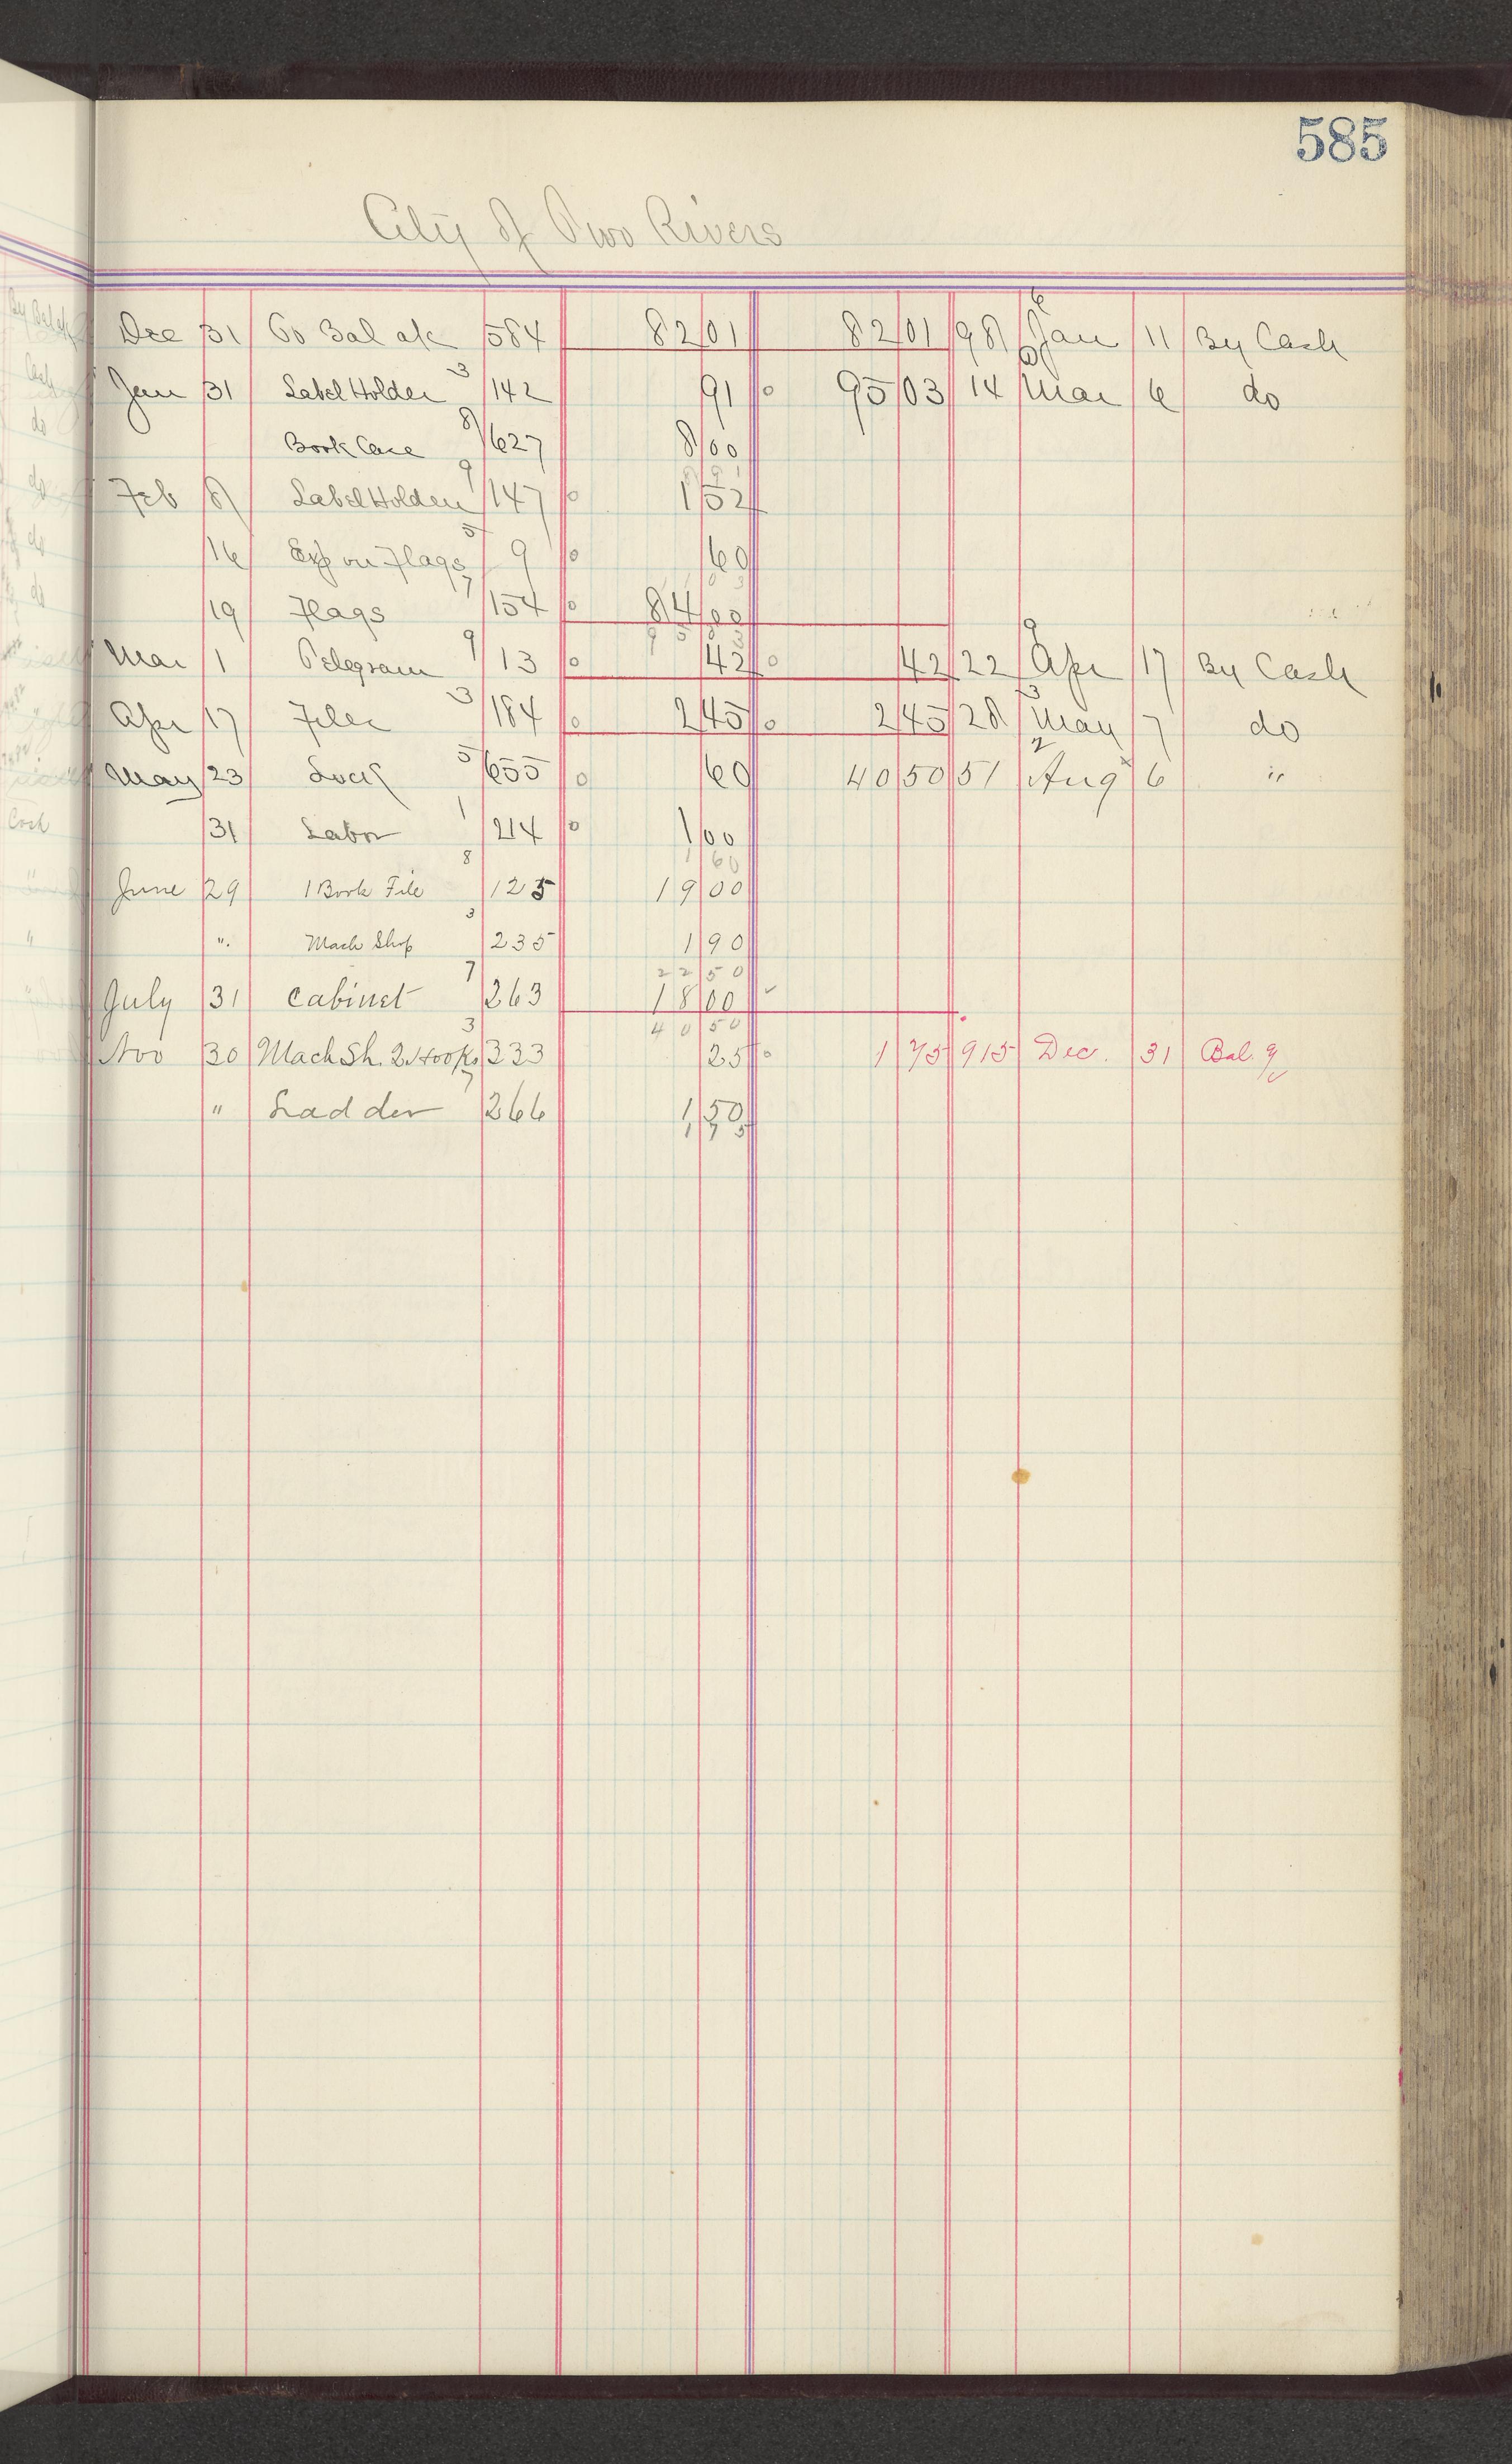 585
City of Two Rivers
6
Dec 31 To Bal a/c 584 82 01 82 01 98 Jan 11 By Cash
3
Jan 31 Label Holder 142 91 o 95 03 14 Mar 6 do
8
Book Case 627 8 00
9 8 91
Feb 8 Label Holder 147 o 1 52
5
16 Exp on Flags 9 o 60
7 11 03
19 Flags 154 o 84 00
9 95 03 9
Mar 1 Telegram 13 o 42 o 42 22 Apr 17 By Cash
3 3
Apr 17 Files 184 o 2 45 o 2 45 28 May 7 do
5 2
May 23 Lock 655 o 60 40 50 51 Aug 6 "
1
31 Labor 214 o 1 00
8 1 60
June 29 1 Book File 125 19 00
3
" Mach Shop 235 1 90
7 22 50
July 31 Cabinet 263 18 00
3 40 50
Nov 30 Mach Sh. 2 Hooks 333 25 o 1 75 915 Dec. 31 Bal.
7
" Ladder 266 1 50
1 75